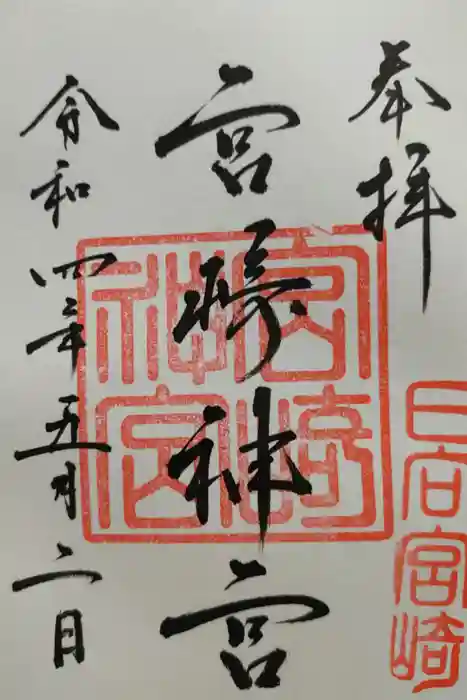 奉拝
宮崎神宮
令和四年五月二日
宮崎神宮
日向宮崎